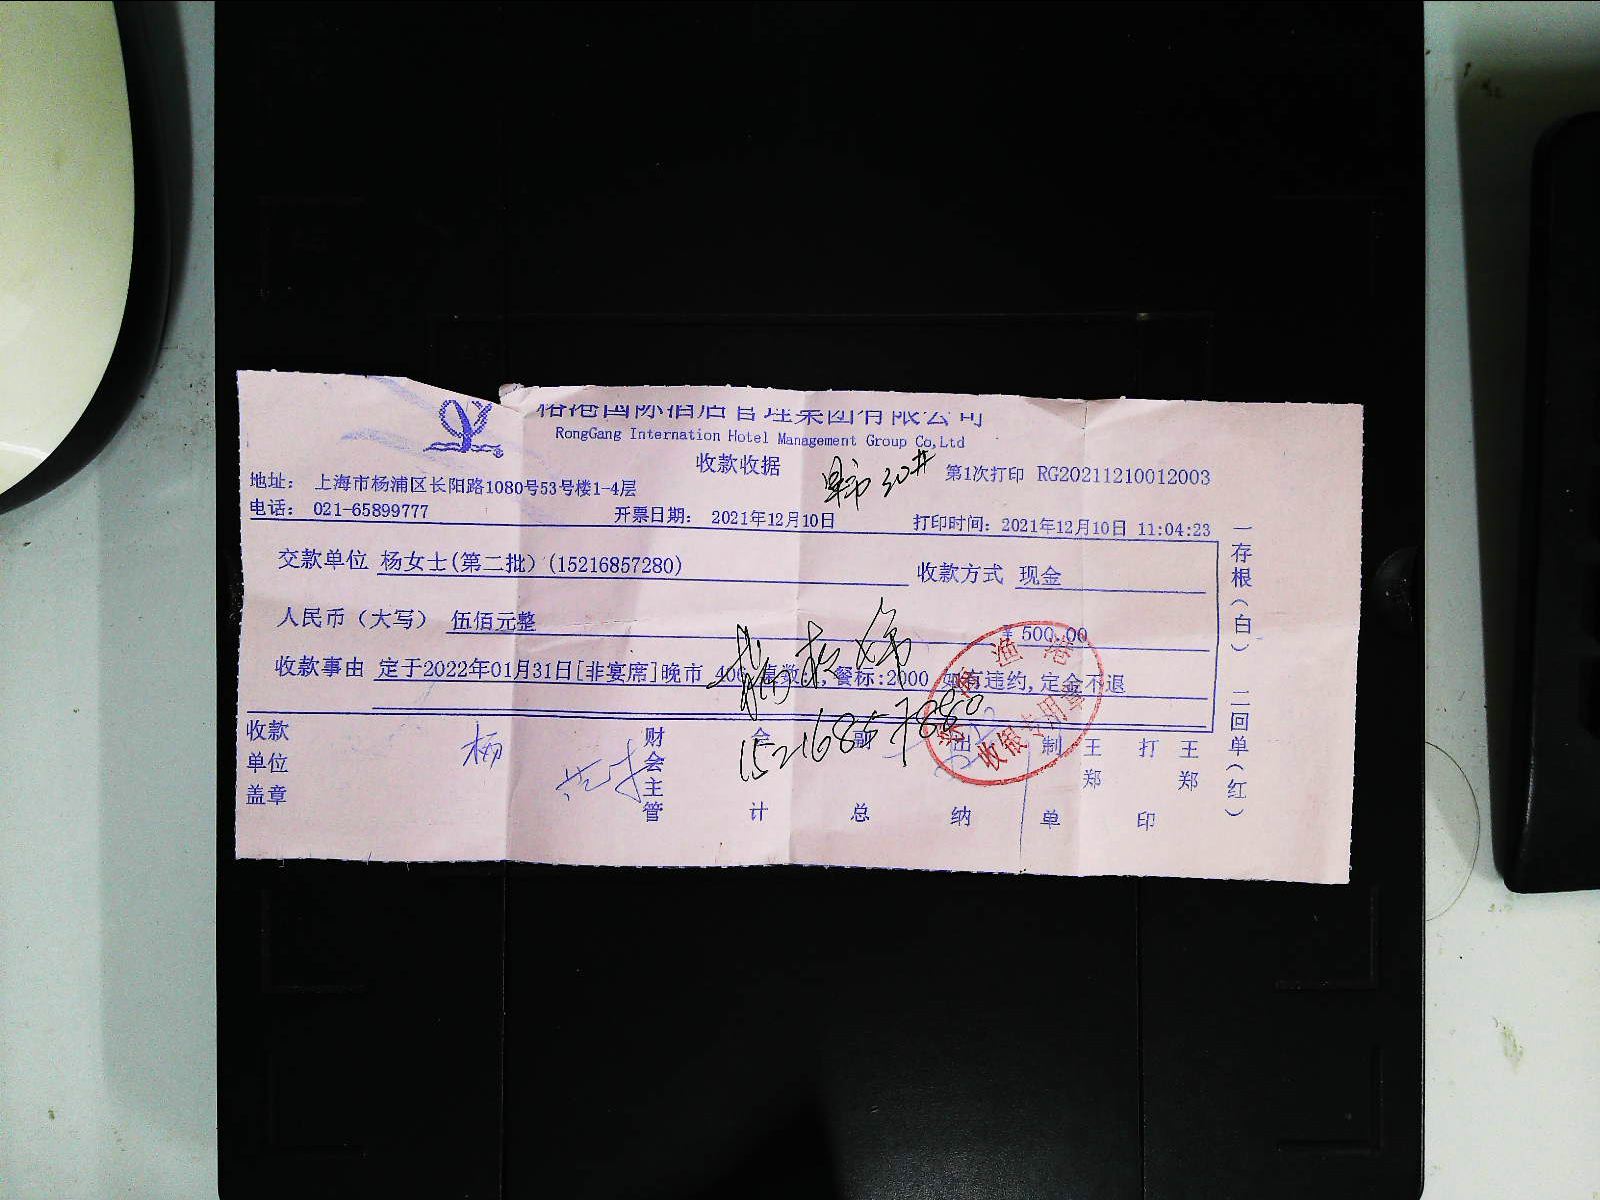 榕港国际酒店管理集团有限公司
RongGang Internation Hotel Management Group Co,Ltd
收款收据
30# 第1次打印 RG20211210012003
地址： 上海市杨浦区长阳路1080号53号楼1-4层
电话： 021-65899777 开票日期： 2021年12月10日 打印时间：2021年12月10日 11:04:23
交款单位 杨女士(第二批）(15216857280) 收款方式 现金
人民币（大写） 伍佰元整 ¥ 500.00
收款事由 定于2022年01月31日[非宴席]晚市 406 桌数: ,餐标:2000 如有违约,定金不退
杨
15216857280
渔港
收银专用章
收款单位盖章 杨 财会主管 会计 副总 出纳 制单 王郑 打印 王郑
一存根(白) 二回单(红)